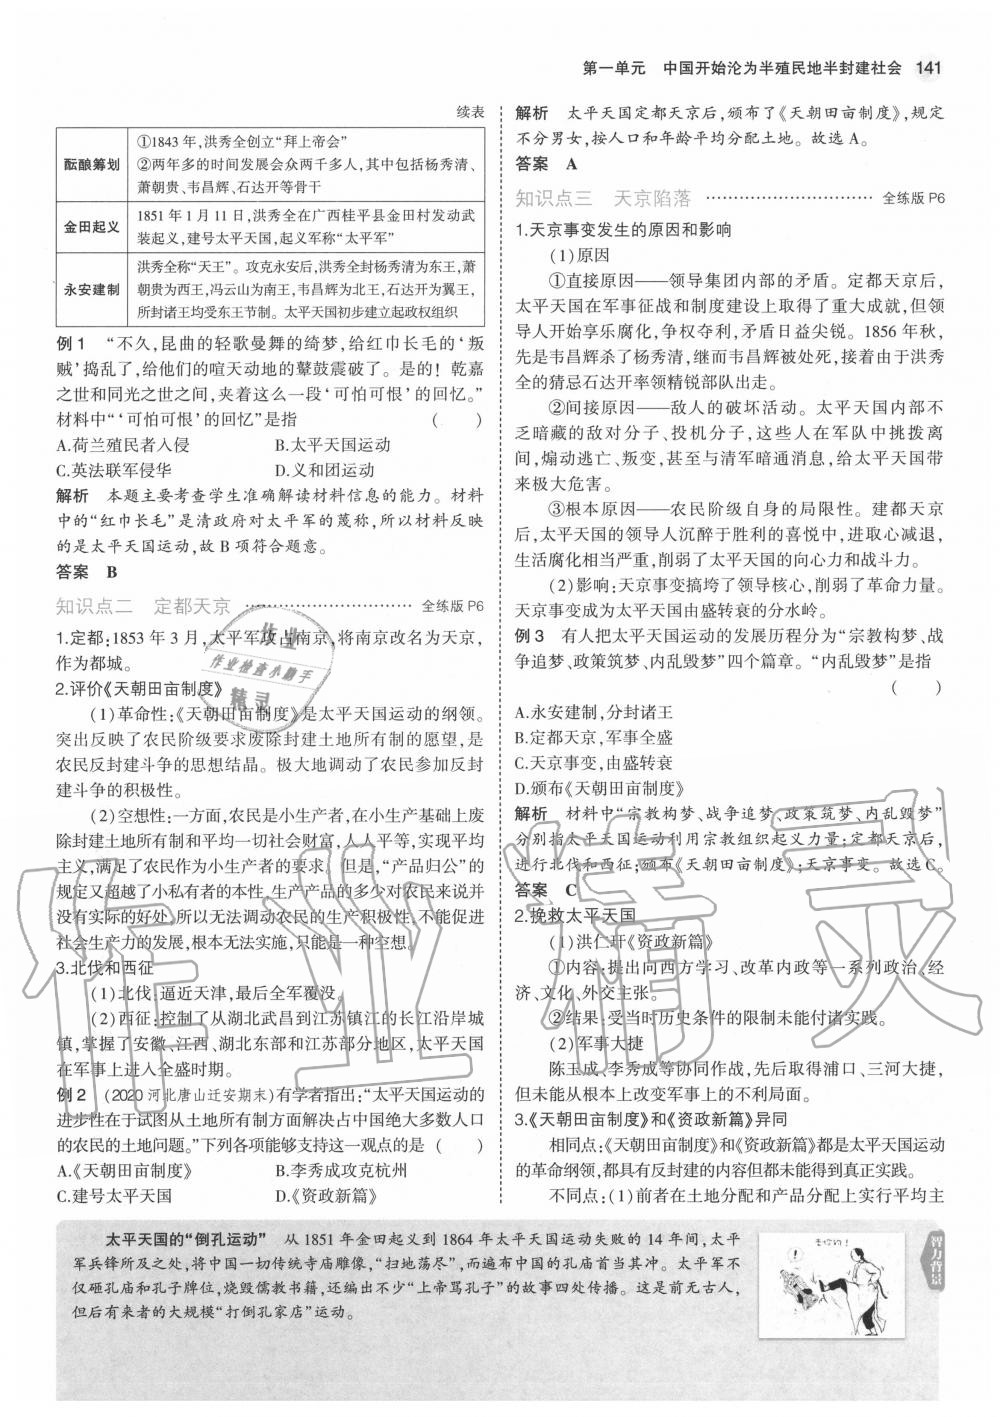 第一单元　中国开始沦为半殖民地半封建社会　141
续表
酝酿筹划
①1843年,洪秀全创立“拜上帝会”
②两年多的时间发展会众两千多人,其中包括杨秀清、
萧朝贵、韦昌辉、石达开等骨干
金田起义
1851年1月11日,洪秀全在广西桂平县金田村发动武
装起义,建号太平天国,起义军称“太平军”
永安建制
洪秀全称“天王”。攻克永安后,洪秀全封杨秀清为东王,萧
朝贵为西王,冯云山为南王,韦昌辉为北王,石达开为翼王,
所封诸王均受东王节制。太平天国初步建立起政权组织
例1　“不久,昆曲的轻歌曼舞的绮梦,给红巾长毛的‘叛
贼’捣乱了,给他们的喧天动地的鼙鼓震破了。是的！乾嘉
之世和同光之世之间,夹着这么一段‘可怕可恨’的回忆。”
材料中“‘可怕可恨’的回忆”是指　(　　)
A.荷兰殖民者入侵　B.太平天国运动
C.英法联军侵华　D.义和团运动
解析　本题主要考查学生准确解读材料信息的能力。材料
中的“红巾长毛”是清政府对太平军的蔑称,所以材料反映
的是太平天国运动,故B项符合题意。
答案　B
知识点二　定都天京　全练版P6
1.定都:1853年3月,太平军攻占南京,将南京改名为天京,
作为都城。
2.评价《天朝田亩制度》
(1)革命性:《天朝田亩制度》是太平天国运动的纲领。
突出反映了农民阶级要求废除封建土地所有制的愿望,是
农民反封建斗争的思想结晶。极大地调动了农民参加反封
建斗争的积极性。
(2)空想性:一方面,农民是小生产者,在小生产基础上废
除封建土地所有制和平均一切社会财富,人人平等,实现平均
主义,满足了农民作为小生产者的要求。但是,“产品归公”的
规定又超越了小私有者的本性,生产产品的多少对农民来说并
没有实际的好处,所以无法调动农民的生产积极性,不能促进
社会生产力的发展,根本无法实施,只能是一种空想。
3.北伐和西征
(1)北伐:逼近天津,最后全军覆没。
(2)西征:控制了从湖北武昌到江苏镇江的长江沿岸城
镇,掌握了安徽、江西、湖北东部和江苏部分地区,太平天国
在军事上进入全盛时期。
例2　(2020河北唐山迁安期末)有学者指出:“太平天国运动的
进步性在于试图从土地所有制方面解决占中国绝大多数人口
的农民的土地问题。”下列各项能够支持这一观点的是　(　　)
A.《天朝田亩制度》　B.李秀成攻克杭州
C.建号太平天国　D.《资政新篇》
解析　太平天国定都天京后,颁布了《天朝田亩制度》,规定
不分男女,按人口和年龄平均分配土地。故选A。
答案　A
知识点三　天京陷落　全练版P6
1.天京事变发生的原因和影响
(1)原因
①直接原因——领导集团内部的矛盾。定都天京后,
太平天国在军事征战和制度建设上取得了重大成就,但领
导人开始享乐腐化,争权夺利,矛盾日益尖锐。1856年秋,
先是韦昌辉杀了杨秀清,继而韦昌辉被处死,接着由于洪秀
全的猜忌石达开率领精锐部队出走。
②间接原因——敌人的破坏活动。太平天国内部不
乏暗藏的敌对分子、投机分子,这些人在军队中挑拨离
间,煽动逃亡、叛变,甚至与清军暗通消息,给太平天国带
来极大危害。
③根本原因——农民阶级自身的局限性。建都天京
后,太平天国的领导人沉醉于胜利的喜悦中,进取心减退,
生活腐化相当严重,削弱了太平天国的向心力和战斗力。
(2)影响:天京事变搞垮了领导核心,削弱了革命力量。
天京事变成为太平天国由盛转衰的分水岭。
例3　有人把太平天国运动的发展历程分为“宗教构梦、战
争追梦、政策筑梦、内乱毁梦”四个篇章。“内乱毁梦”是指
(　　)
A.永安建制,分封诸王
B.定都天京,军事全盛
C.天京事变,由盛转衰
D.颁布《天朝田亩制度》
解析　材料中“宗教构梦、战争追梦、政策筑梦、内乱毁梦”
分别指太平天国运动利用宗教组织起义力量;定都天京后,
进行北伐和西征;颁布《天朝田亩制度》;天京事变。故选C。
答案　C
2.挽救太平天国
(1)洪仁玕《资政新篇》
①内容:提出向西方学习、改革内政等一系列政治、经
济、文化、外交主张。
②结果:受当时历史条件的限制未能付诸实践。
(2)军事大捷
陈玉成、李秀成等协同作战,先后取得浦口、三河大捷,
但未能从根本上改变军事上的不利局面。
3.《天朝田亩制度》和《资政新篇》异同
相同点:《天朝田亩制度》和《资政新篇》都是太平天国运动
的革命纲领,都具有反封建的内容但都未能得到真正实践。
不同点:(1)前者在土地分配和产品分配上实行平均主
太平天国的“倒孔运动”　从1851年金田起义到1864年太平天国运动失败的14年间,太平
军兵锋所及之处,将中国一切传统寺庙雕像,“扫地荡尽”,而遍布中国的孔庙首当其冲。太平军不
仅砸孔庙和孔子牌位,烧毁儒教书籍,还编出不少“上帝骂孔子”的故事四处传播。这是前无古人,
但后有来者的大规模“打倒孔家店”运动。
智力背景
作业
作业检查小助手
精灵
作业精灵